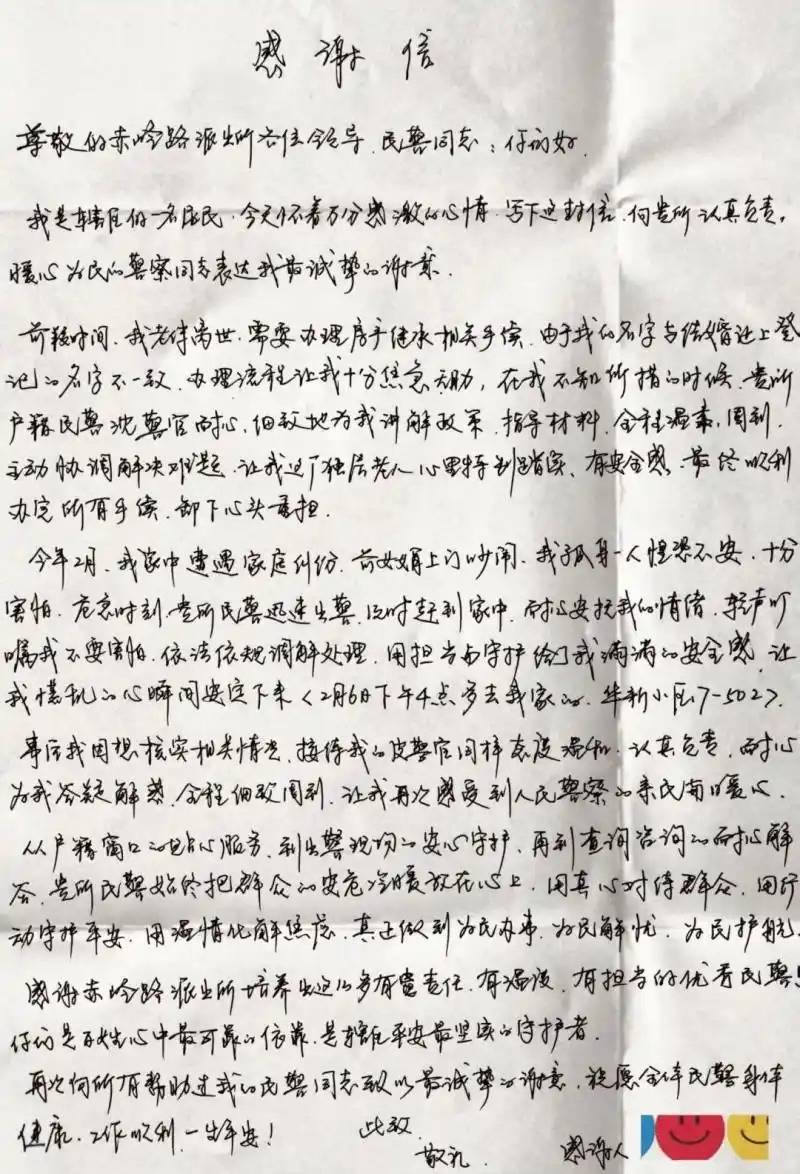 感谢信
尊敬的赤岭路派出所各位领导、民警同志：你们好、
我是辖区的一名居民、今天怀着万分感激的心情、写下这封信、向贵所认真负责、
暖心为民的警察同志表达我最诚挚的谢意、
前段时间、我老伴离世、需要办理房产继承相关手续、由于我的名字与结婚证上登
记的名字不一致、办理流程让我十分焦急无助，在我不知所措的时候、贵所
户籍民警沈警官耐心、细致地为我讲解政策、指导材料、全程温柔，周到、
主动协调解决难题、让我这个独居老人心里特别踏实、有安全感、最终顺利
办完所有手续、卸下心头重担、
今年2月、我家中遭遇家庭纠纷、前女婿上门吵闹、我孤身一人惶恐不安、十分
害怕、危急时刻、贵所民警迅速出警、及时赶到家中、耐心安抚我的情绪、轻声叮
嘱我不要害怕、依法依规调解处理、用担当与守护给了我满满的安全感、让
我慌乱的心瞬间安定下来〈2月6日下午4点多去我家的、华新小区7-502〉、
事后我因想核实相关情况、接待我的皮警官同样态度温和、认真负责、耐心
为我答疑解惑、全程细致周到、让我再次感受到人民警察的亲民与暖心、
从户籍窗口的贴心服务、到出警现场的安心守护、再到查询咨询的耐心解
答、贵所民警始终把群众的安危冷暖放在心上、用真心对待群众、用行
动守护平安、用温情化解焦虑、真正做到为民办事、为民解忧、为民护航、
感谢赤岭路派出所培养出这么多有责任、有温度、有担当的优秀民警！
你们是百姓心中最可靠的依靠、是辖区平安最坚实的守护者、
再次向所有帮助过我的民警同志致以最诚挚的谢意、祝愿全体民警身体
健康、工作顺利、一生平安！
此致
敬礼、
感谢人